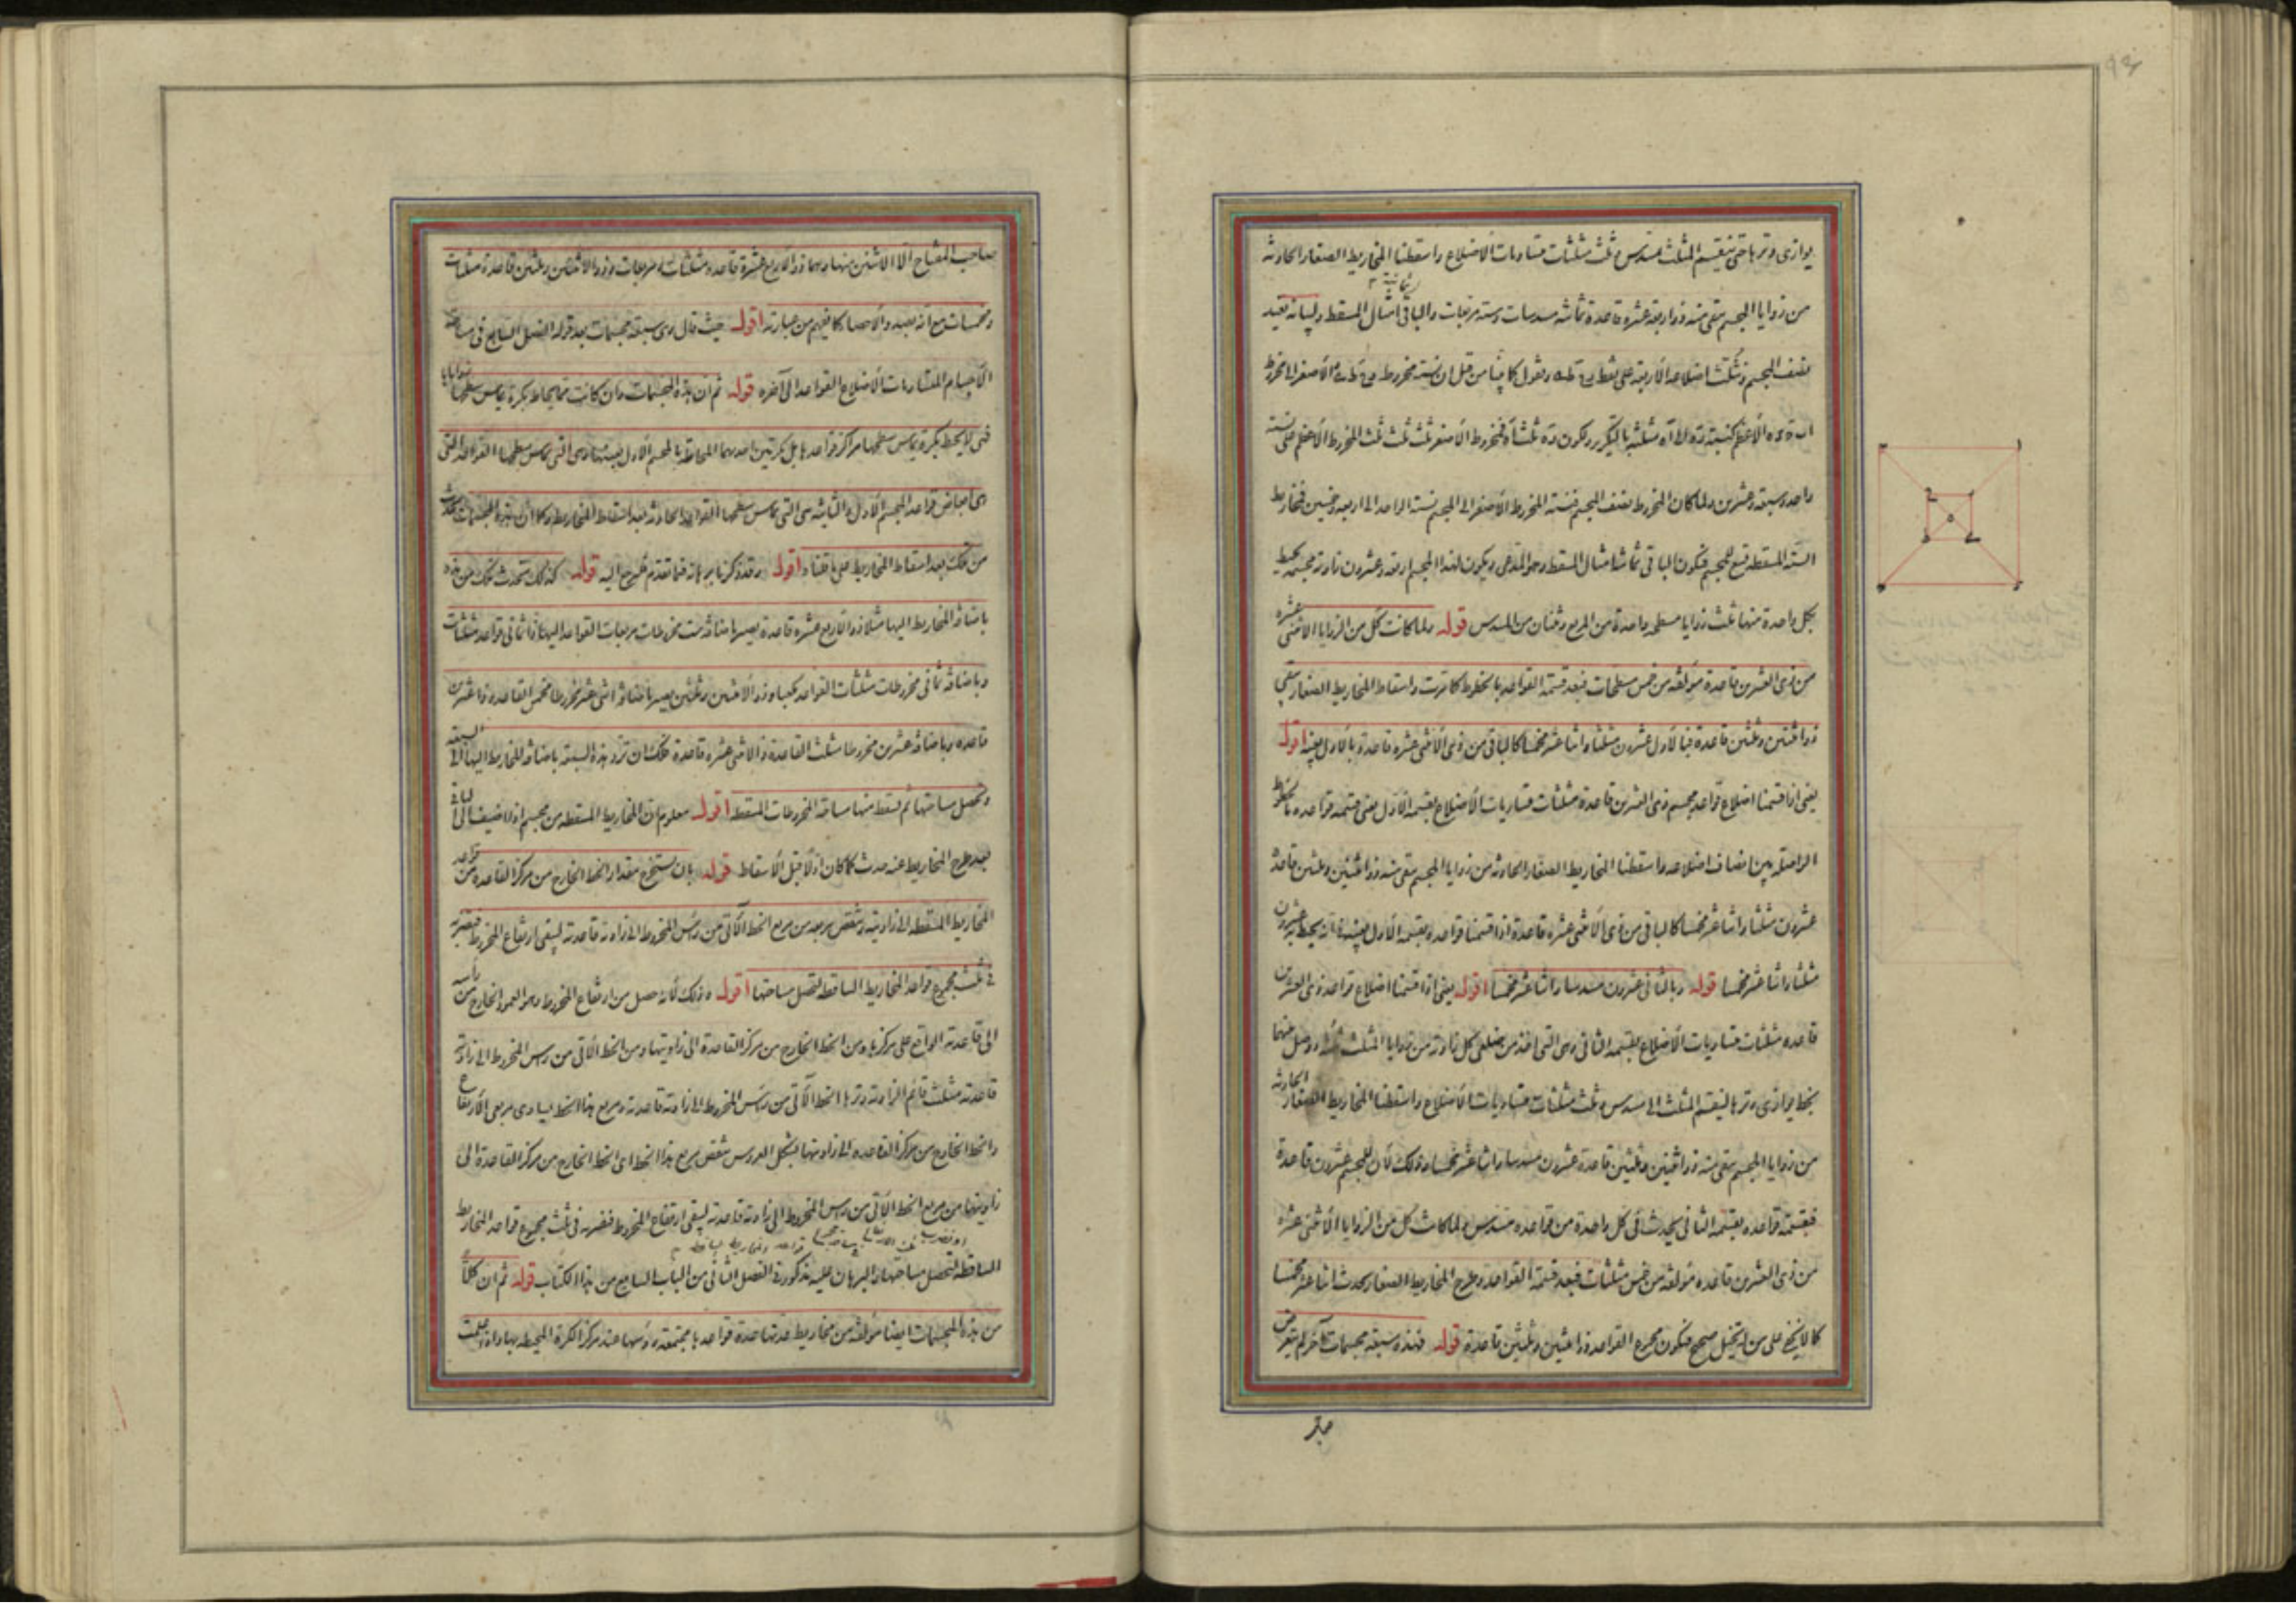 يوازى وترها حتى ينقسم المثلث بمسدس وثلث مثلثات متساويات الاضلاع واسقطنا المخاريط الصغار الحادثة
من زوايا المجسم يبقى منه ذو اربعة عشرة قاعدة ثمانية مسدسات وستة مربعات والباقى امثال المسقط وليبانه نعيد
نصف المجسم ونثلث اضلاعه الاربعة على نقط ونقول كما بينا من قبل ان نسبة مخروط الاصغر الى مخروط
الاعظم كنسبة مثلثة بالتكرير ويكون ثلث فمخروط الاصغر ثلث ثلث ثلث المخروط الاعظم على نسبة
واحد وسبعة وعشرين ولما كان المخروط نصف المجسم فنسبة المخروط الاصغر الى المجسم نسبة الواحد الى اربعة وخمسين فمخاريط
الستة المسقطة تسع المجسم فيكون الباقى ثمانية امثال المسقط وهو المدعى ويكون لهذا المجسم اربعة وعشرون زاوية مجسمة يحيط
بكل واحدة منها ثلث زوايا مسطحة واحدة من المربع وثنتان من المسدس قوله ولما كانت كل من الزوايا الاثنى عشرة
من ذى العشرين قاعدة مؤلفة من خمس مسطحات فبعد قسمة القواعد بالخطوط كما مرت واسقاط المخاريط الصغار يبقى
ذو اثنتين وثلثين قاعدة فبالاول عشرون مثلثا واثنا عشر مخمسا كالباقى من ذى الاثنى عشرة قاعدة بالاول بعينه اقول
يعنى اذا قسمنا اضلاع قواعد مجسم ذى العشرين قاعدة مثلثات متساويات الاضلاع بقسمة الاول يعنى قسمة قواعده بالخطوط
الواصلة بين انصاف اضلاعه واسقطنا المخاريط الصغار الحادثة من زوايا المجسم يبقى منه ذو اثنتين وثلثين قاعدة
عشرون مثلثا واثنا عشر مخمسا كالباقى من ذى الاثنى عشرة قاعدة اذا قسمنا قواعده بقسمة الاول بعينه فانه يحيط به عشرون
مثلثا واثنا عشر مخمسا قوله وبالثانى عشرون مسدسا واثنا عشر مخمسا اقول يعنى اذا قسمنا اضلاع قواعد ذى العشرين
قاعدة مثلثات متساويات الاضلاع بقسمة الثانى وهى التى اخذ من ضلعى كل زاوية من زوايا المثلث ثلثه ووصل بينهما
بخط يوازى وترها لينقسم المثلث الى مسدس وثلث مثلثات متساويات الاضلاع واسقطنا المخاريط الصغار الحادثة
من زوايا المجسم يبقى منه ذو اثنتين وثلثين قاعدة عشرون مسدسا واثنا عشر مخمسا وذلك لان للمجسم عشرون قاعدة
فبقسمة قواعده بقسمة الثانى يحدث فى كل واحدة من قواعده مسدس ولما كانت كل من الزوايا الاثنى عشرة
من ذى العشرين قاعدة مؤلفة من خمس مثلثات فبعد قسمة القواعد وطرح المخاريط الصغار يحدث اثنا عشر مخمسا
كما لا يخفى على من له تخيل صحيح فيكون مجموع القواعد ذو اثنتين وثلثين قاعدة قوله فهذه سبعة مجسمات آخر لم يتعرض
صاحب المفتاح الا الاثنين منها وهما ذو الاربع عشرة قاعدة مثلثات ومربعات وذو الاثنتين وثلثين قاعدة مثلثات
ومخمسات مع انه بصدد الاحصار كما يفهم من عبارته اقول حيث قال وهى سبعة مجسمات بعد قوله الفصل السابع فى مساحة
الاجسام المتساويات الاضلاع القواعد الى آخره قوله ثم ان هذه المجسمات وان كانت مما يحاط بكرة يماس سطحها زواياها
فهى لا يحيط بكرة يماس سطحها مراكز قواعدها بل بكرتين احدهما المحاطة بالمجسم الاول بعينها وهى التى يماس سطحها القواعد التى
هى ابعاض قواعد المجسم الاول والثانية هى التى يماس سطحها القواعد الحادثة بعد اسقاط المخاريط وكما ان هذه المجسمات تحدث
من تلك بعد اسقاط المخاريط على ما قلنا اقول وقد ذكرنا برهانه فيما تقدم فليرجع اليه قوله كذلك تحدث تلك من هذه
باضافة المخاريط اليها مثلا ذو الاربع عشرة قاعدة يصير باضافة ست مخروطات مربعات القواعد اليها ذا ثمانى قواعد مثلثات
وباضافة ثمانى مخروطات مثلثات القواعد مكعبا وذو الاثنتين وثلثين يصير باضافة اثنى عشر مخروطا مخمس القاعدة ذا عشرين
قاعدة وباضافة عشرين مخروطا مثلث القاعدة ذا الاثنى عشرة قاعدة فلك ان ترد هذه السبعة باضافة المخاريط اليها الى السبعة
وتحصل مساحتها ثم تسقط منها مساحة المخروطات المسقطة اقول معلوم ان المخاريط المسقطة من مجسم اذا اضيف الى الباقى
بعد طرح المخاريط عنه حدث كما كان اولا قبل الاسقاط قوله بان تستخرج مقدار الخط الخارج من مركز القاعدة من قواعد
المخاريط المسقطة الى زاويته وتنقص مربعه من مربع الخط الآتى من رأس المخروط الى زاوية قاعدته ليبقى ارتفاع المخروط فتضربه
فى ثلث مجموع قواعد المخاريط الساقطة لتحصل مساحتها اقول وذلك لانه حصل من ارتفاع المخروط وهو العمود الخارج من رأسه
الى قاعدته الواقع على مركزها ومن الخط الخارج من مركز القاعدة الى زاويتها ومن الخط الآتى من رأس المخروط الى زاوية
قاعدته مثلث قائم الزاوية وترها الخط الآتى من رأس المخروط الى زاوية قاعدته ومربع هذا الخط يساوى مربعى الارتفاع
والخط الخارج من مركز القاعدة الى زاويتها بشكل العروس فنقص مربع هذا الخط اى الخط الخارج من مركز القاعدة الى
زاويتها من مربع الخط الآتى من رأس المخروط الى زاوية قاعدته ليبقى ارتفاع المخروط فنضربه فى ثلث مجموع قواعد المخاريط
الساقطة لتحصل مساحتها والبرهان عليه مذكور فى الفصل الثانى من الباب السابع من هذا الكتاب قوله ثم ان كلا
من هذه المجسمات ايضا مؤلفة من مخاريط عدتها عدة قواعدها مجتمعة رؤسها عند مركز الكرة المحيطة بها واذا علمت